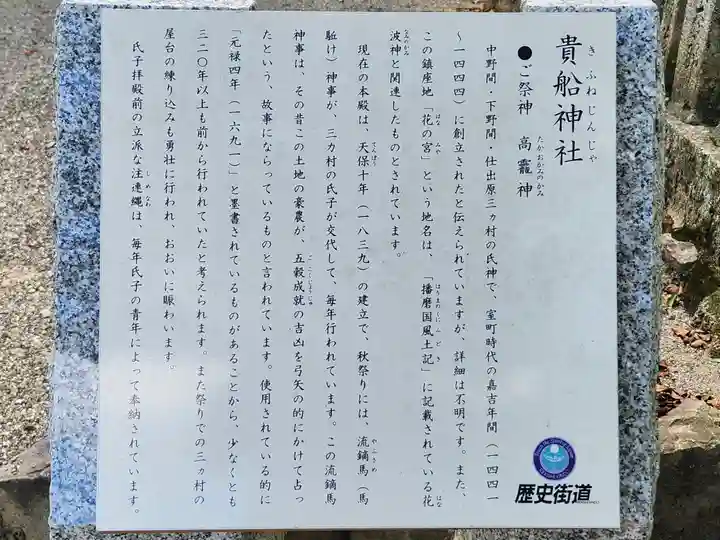 貴船神社
きふねじんじゃ
●ご祭神 高龗神
たかおかみのかみ
中野間・下野間・仕出原三ヵ村の氏神で、室町時代の嘉吉年間（一四四一
～一四四四）に創立されたと伝えられていますが、詳細は不明です。また、
この鎮座地「花の宮」という地名は、「播磨国風土記」に記載されている花
はな みや
はりまのくにふどき
はな
波神と関連したものとされています。
なみのかみ
現在の本殿は、天保十年（一八三九）の建立で、秋祭りには、流鏑馬（馬
てんぽう
やぶさめ
駈け）神事が、三カ村の氏子が交代して、毎年行われています。この流鏑馬
神事は、その昔この土地の豪農が、五穀成就の吉凶を弓矢の的にかけて占っ
ごこくじょうじゅ
たという、故事にならっているものと言われています。使用されている的に
「元禄四年（一六九一）」と墨書されているものがあることから、少なくとも
三二〇年以上も前から行われていたと考えられます。また祭りでの三ヵ村の
屋台の練り込みも勇壮に行われ、おおいに賑わいます。
氏子拝殿前の立派な注連縄は、毎年氏子の青年によって奉納されています。
しめなわ
歴史街道